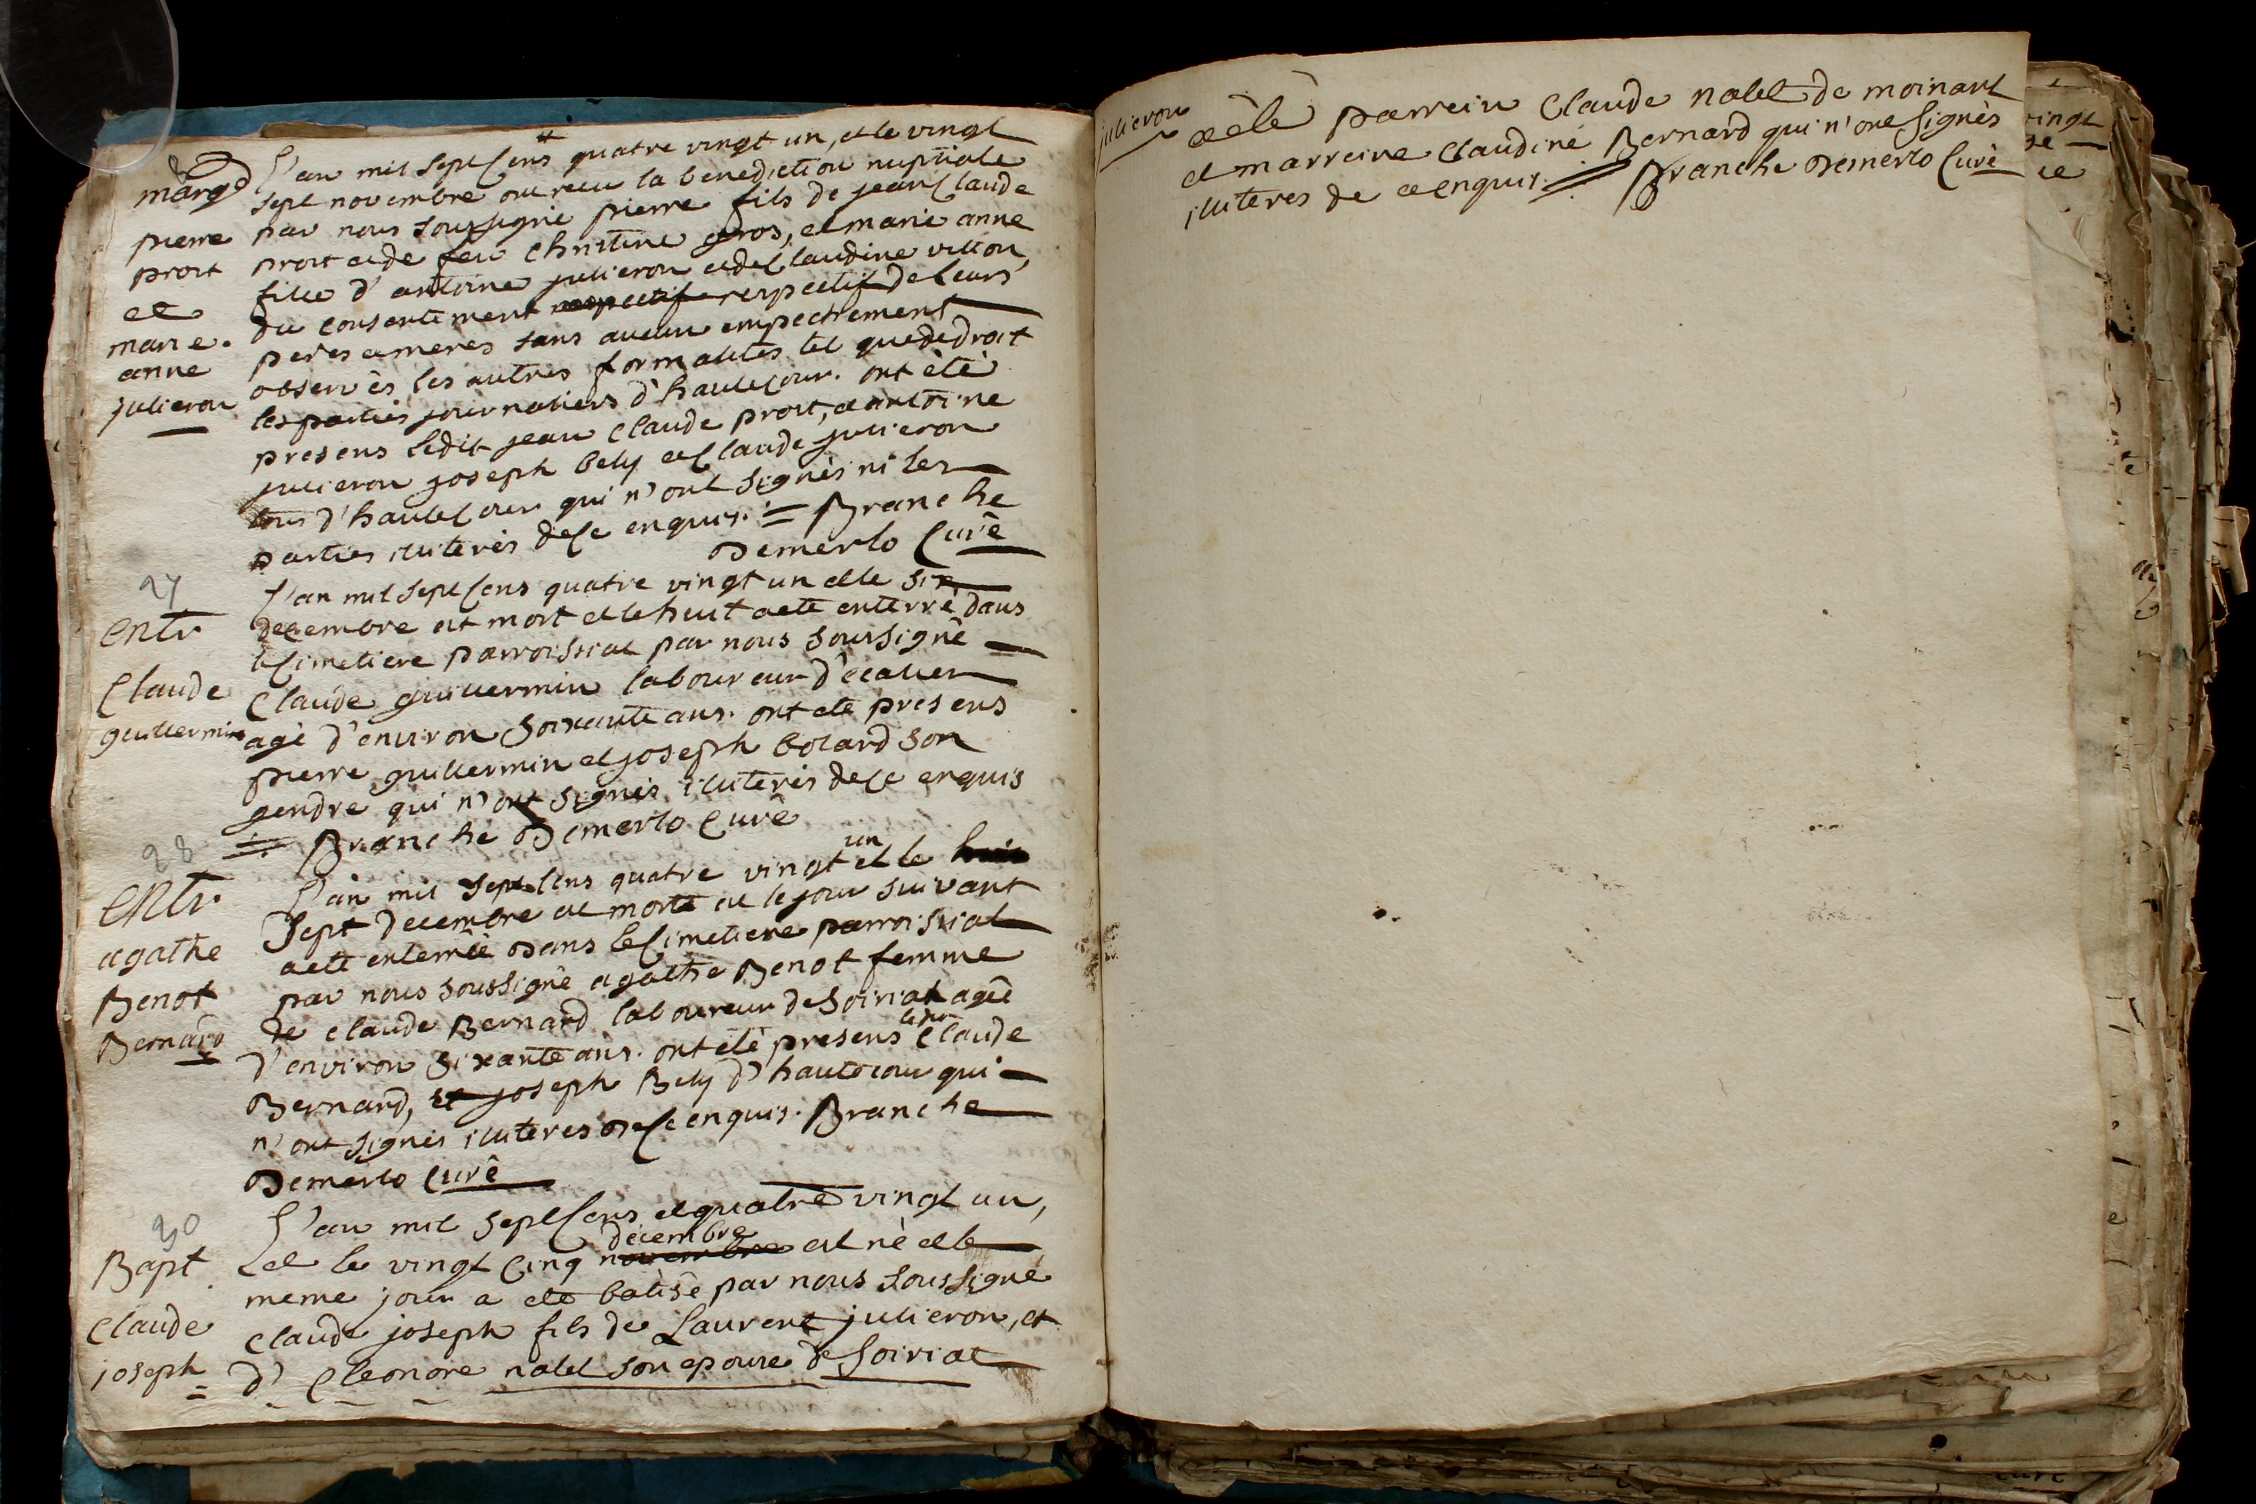 marg
pierre
proit
et
marie.
anne
julieron
L'an mil sept cens quatre vingt un, et le vingt
sept novembre ont recu la benediction nuptiale
par nous soussigné pierre fils de jean Claude
proit et de feu Christine gros, et marie anne
fille d'antoine julieron et de Claudine villon,
du consentement respectif respectif de leurs
peres et meres sans aucun empechement
observés les autres formalités tel que de droit
les parties journaliers d'hautecour. ont été
presens ledit jean Claude proit, et antoine
julieron joseph bely et Claude julieron
tous d'hautecour qui n'ont signés ni les
parties illiterés de ce enquis. = Branche
Demerlo Curé
27
Entr
Claude
guillermin
L'an mil sept cens quatre vingt un et le six
decembre est mort et le huit a eté enterré dans
le cimetiere parroissial par nous soussigné
Claude guillermin laboureur d'écalier
agé d'environ soixante ans. ont eté presens
pierre guillermin et joseph bolard son
gendre qui n'ont signés illiterés de ce enquis
= Branche Demerlo Curé
28
Entr.
agathe
Benot
Bernard
L'an mil sept cens quatre vingt un et le huit
sept decembre est morte et le jour suivant
a eté enterrée dans le cimetiere parroissial
par nous soussigné agathe Benot femme
de claude Bernard laboureur de soiriat agée
d'environ sixante ans. ont été presens ledit Claude
Bernard, et joseph Bely d'hautecour qui
n'ont signés illiterés de ce enquis. Branche
Demerlo Curé
30
Bapt
Claude
joseph =
L'an mil sept cens et quatre vingt un,
et le vingt cinq novembre decembre est né et le
meme jour a eté batisé par nous soussigné
claude joseph fils de Laurent julieron, et
d'Eleonore nalet son epouse de Soiriat
julieron
a été parrein Claude nalet de moinant
et marreine Claudine Bernard qui n'ont signés
illiterés de ce enquis. = Branche Demerlo Curé